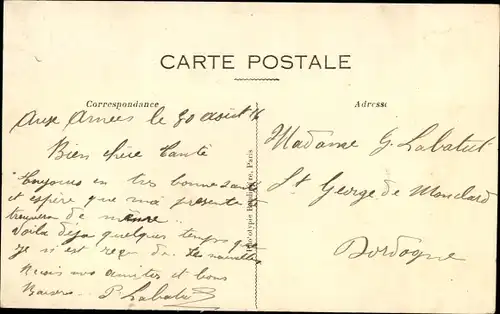 CARTE POSTALE
Correspondance
Aux Armées le 30 Août 16
Bien chère Tante
Toujours en tres bonne santé
et espère que ma presente te
trouvera de même.
Voila déja quelques temps que
je n'est reçu de tes nouvelles
Recois mes amities et bons
Baisers P. Labatut
Paris
Adresse
Madame G. Labatut
St George de Monclard
Dordogne